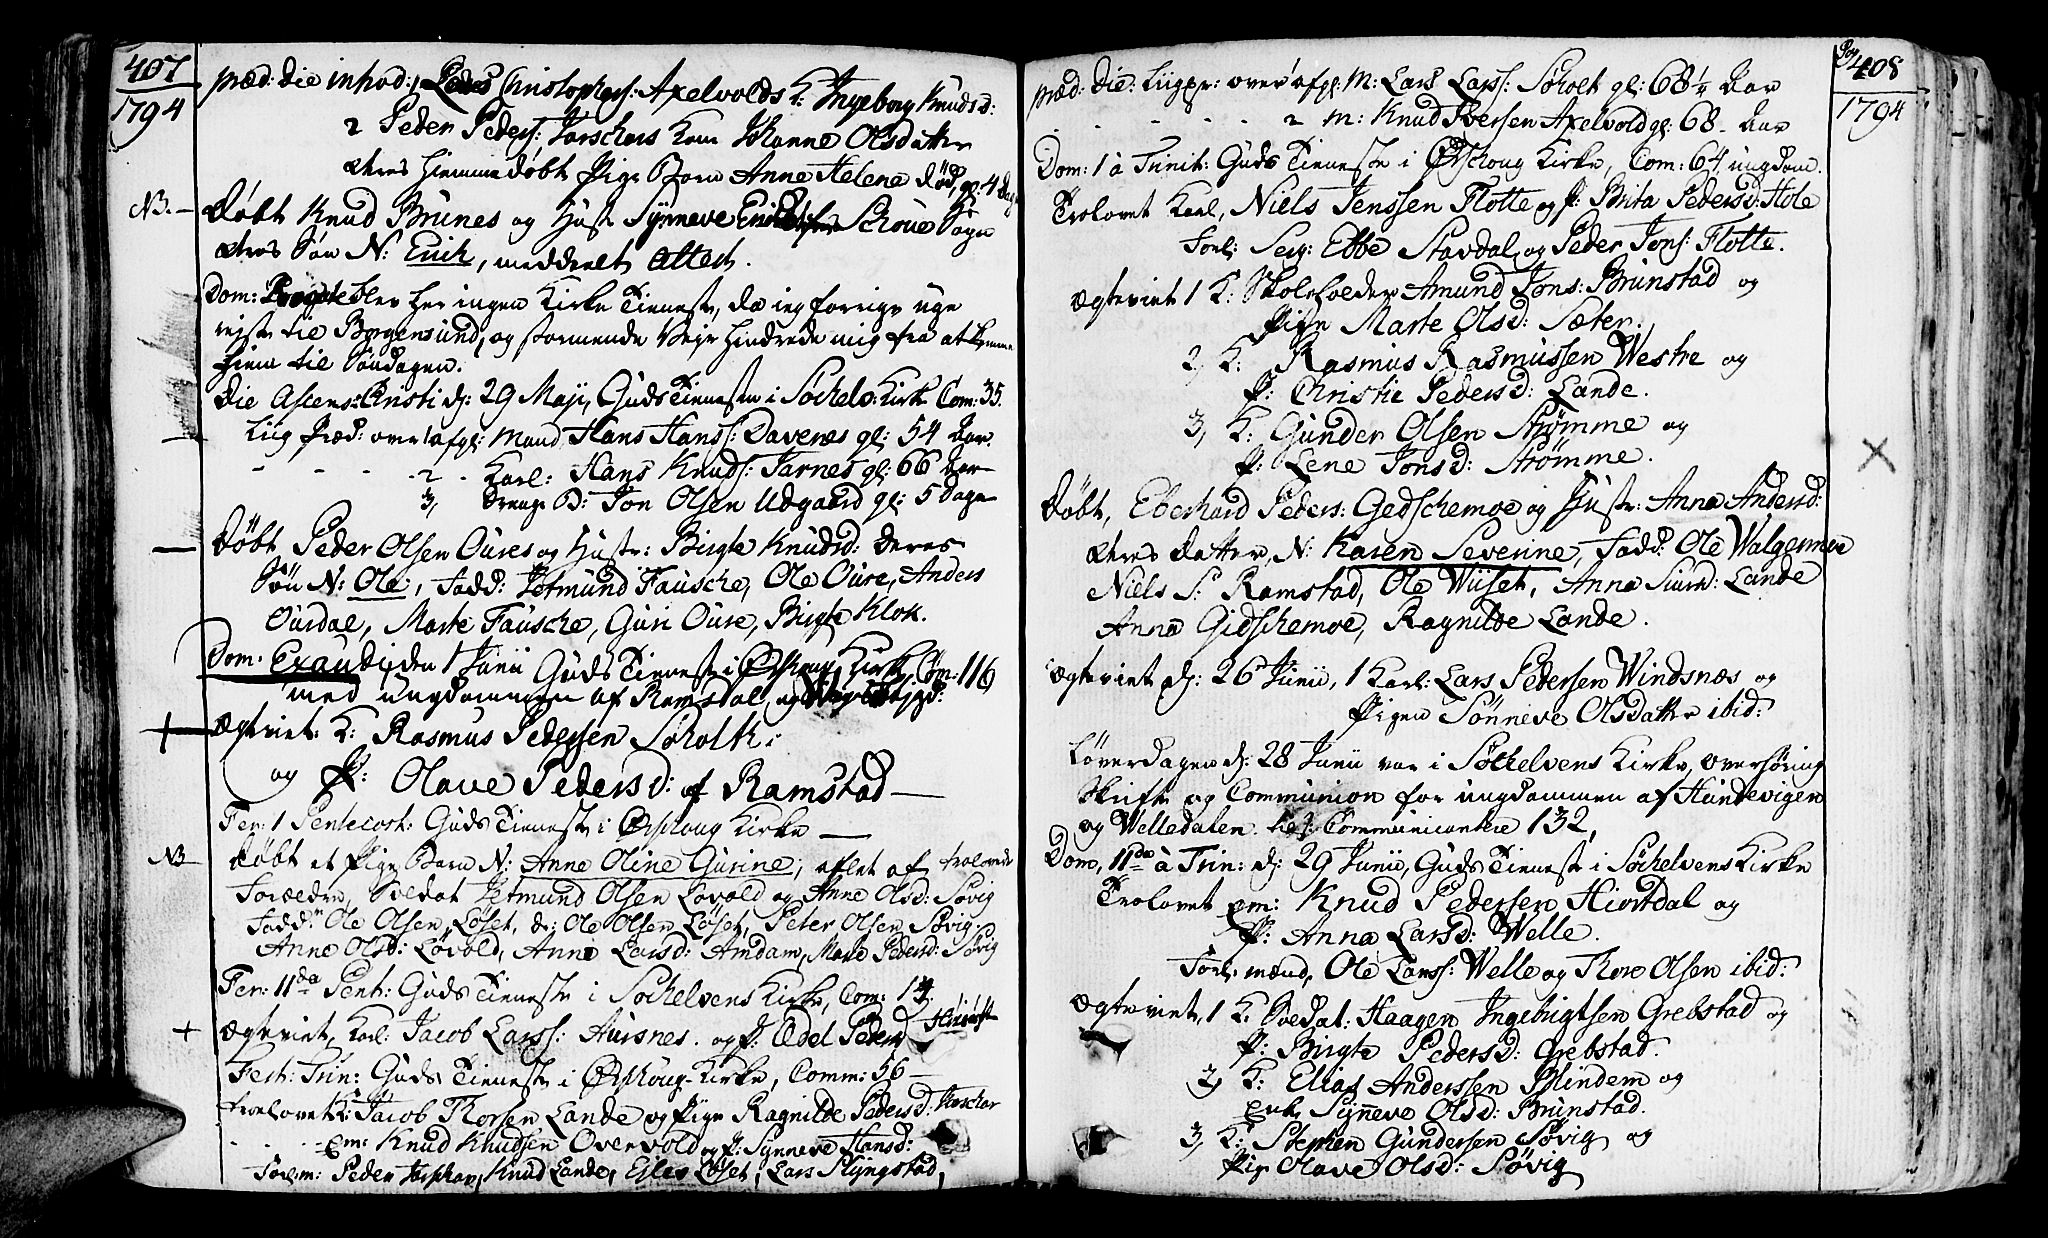 407
1794
præd: die introd: 1 Peder Christophers: Axelvolds K: Ingeborg Knudsd:
2 Peder Peders: Jarschars Kone Johanne Olsdatter
deres hiemmedøbt Pige Barn Anne Helene død, gl: 4 Dage
NB — Døbt Knud Brunes og Hustr Synneve Schoue Sogn
deres Søn N: Erich, meddeelt Attest.
Dom: blev her ingen Kirke Tieneste, da ieg forrige uge
reiste til Borgensund, og stormende Veir hindrede mig fra at komme
hiem til Søndagen.
Die Ascens: Christi d: 29 Maji, Guds Tieneste i Søchelv: Kirk Com: 35.
Liig Præd: over 1 afgl: Mand Hans Hanss: Davenes gl: 54 Aar.
- - - 2 - Karl: Hans Knuds: Jarnes gl: 66 Aar
3, Drenge B: Jon Olsen Udgaard gl: 5 Dage
Døbt Peder Olsen Oures og Hustr: Birgte Knudsd: deres
Søn N: Ole, Fadd: Jetmund Fausche, Ole Oure, Anders
Ourdal, Marte Fausche, Guri Oure, Birgte Klok.
Dom: Exaudi, den 1 Junii Guds Tieneste i Ørschoug Kirke, Com: 116
med ungdommen af Ramsdal, og
Ægteviet: K: Rasmus Pedersen Søholth:
og P: Olave Pedersd: af Ramstad —
Fer: 1 Pentecost: Guds Tieneste i Ørschoug Kirke —
NB Døbt et Pige Barn N: Anne Oline Gurine, aflet af trolovede
Forældre, Soldat Jetmund Olsen Løvold og Anne Olsd: Søvig
Fadd: Ole Olsen Løset, d: Ole Olsen Løset, Peter Olsen Søvig
Anne Olsd: Løvold, Anne Larsd: Amdam, Marte Pedersd: Søvig
Fer: 11da Pent: Guds Tieneste i Søchelvens Kirke, Com: 14.
+ Ægteviet, Karl: Jacob Larss: Aursnes. og P: Ædel Pedersd
Fest: Trin: Guds Tieneste i Ørschoug Kirke, Comm: 56 —
Trolovet K: Jacob Thorsen Lande og Pige Ragnilde Pedersd: Jarschar
- - - Em: Knud Knudsen Overvold og P: Synneve Hansd:
Forl:m: Peder Jarschar, Knud Lande, Løset, Lars Slyngstad,
Pag 408
1794
præd: Die: Liigpr: over 1 afgl: M: Lars Larss: Søholt gl: 68 1/4 Aar
- - - - - 2 M: Knud Iversen Axelvold gl: 68 - Aar
Dom: 1 à Trinit: Guds Tieneste i Ørschoug Kirke, Com: 64 ungdom.
Trolovet Karl, Niels Jenssen Flotte og P: Brita Pedersd: Hole
Forl: Serg: Ebbe Stavdal, og Peder Jons: Flotte.
Ægteviet 1 K: Skoleholder Amund Jons: Brunstad og
Pige Marte Olsd: Sæter.
2, K: Rasmus Rasmussen Westre og
P: Christie Pedersd: Lande.
3, K: Gunder Olsen Strømme og
P: Lene Jonsd: Strømme.
Døbt, Eberhard Peders: Gedschemoe og Hustr: Anna Andersd:
deres Datter, N: Karen Severine, Fadd: Ole Walgermoe
Niels S: Ramstad, Ole Wiiset, Anna Siurd: Lande
Anna Gidschemoe, Ragnilde Lande.
Ægteviet d: 26 Junii, 1 Karl: Lars Pedersen Windsnæs og
Pigen Sønneve Olsdatter ibid:
Løverdagen d: 28 Junii var i Søchelvens Kirke, overhøring
Skrifte og Communion for ungdommen af Hundevigen
og Welledalen. Communicantere 132,
Dom, 11da à Trin: d: 29 Junii, Guds Tieneste i Søchelvens Kirke
Trolovet Em: Knud Pedersen Hiortdal og
P: Anna Larsd: Welle.
Forl: mænd, Ole Larss: Welle og Thore Olsen ibid:
Ægteviet, 1 K: Soldat: Haagen Ingebrigtsen Grebstad og
P: Birgte Pedersd: Grebstad.
2, K: Elias Anderssen Blindem og
Enk, Synneve Olsd: Brunstad.
3, K: Stephen Gundersen Søvig og
Pige Olave Olsd: Søvig